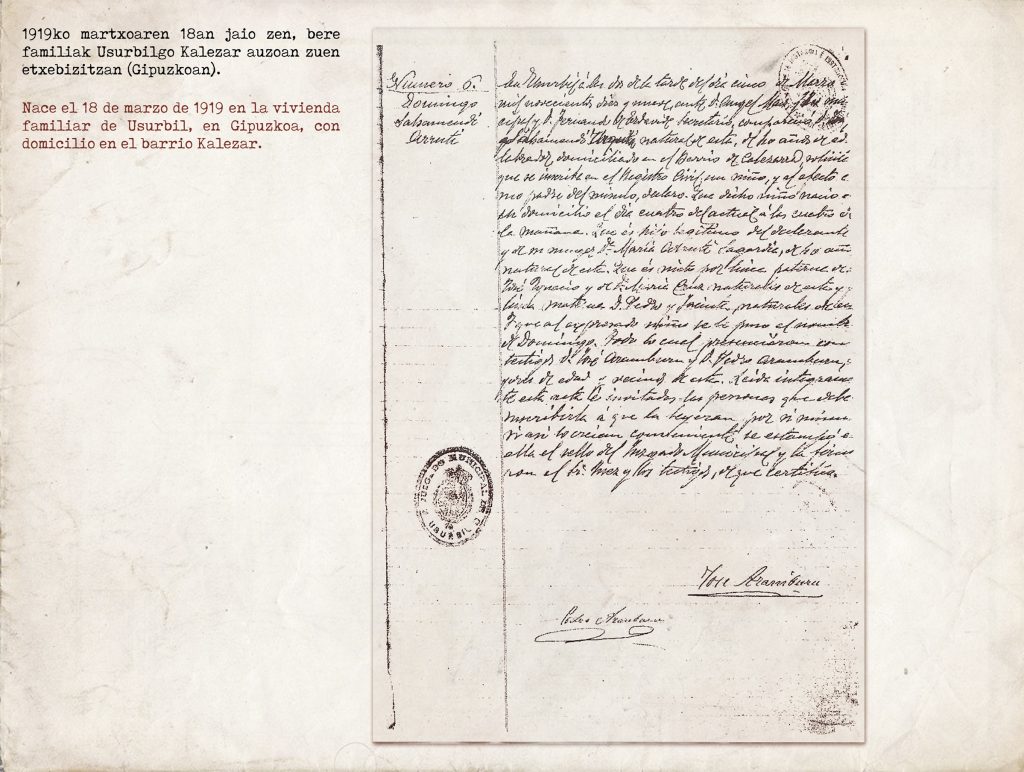 1919ko martxoaren 18an jaio zen, bere
familiak Usurbilgo Kalezar auzoan zuen
etxebizitzan (Gipuzkoan).
Nace el 18 de marzo de 1919 en la vivienda
familiar de Usurbil, en Gipuzkoa, con
domicilio en el barrio Kalezar.
Numero 6.
Domingo
Salsamendi
Arruti
En Usurbil, á las dos de la tarde del día cinco de Marzo
mil novecientos diez y nueve, ante D. Angel
y D. Fernando Secretario, compareció
Salsamendi natural de esta, de años de
labrador, domiciliado en el Barrio de Calezarra, solicitó
que se inscriba en el Registro Civil, un niño, y al efecto
mo padre del mismo, declaro: Que dicho niño nació
su domicilio el día cuatro del actual á las cuatro
la mañana. Que es hijo legítimo del declarante
y de su mujer Dª María Arruti Lagardia, de
natural de esta. Que es nieto por línea paterna de
José Ygnacio y de María Cruz naturales de esta y
línea materna D. Pedro y Vicenta, naturales de
Y que al expresado niño se le puso el nombre
de Domingo. Todo lo cual presenciaron como
testigos D. José Aramburu y D. Pedro Aramburu,
de edad y vecinos de esta. Leida integramen
te esta acta é invitadas las personas que deben
suscribirla á que la leyeran por si mismos
si así lo creían conveniente, se estampó
ella el sello del Juzgado Municipal y la firma
ron el Sr. Juez y los testigos, de que certifico.
JUZGADO MUNICIPAL DE
USURBIL
Jose Aramburu
Pedro Aramburu